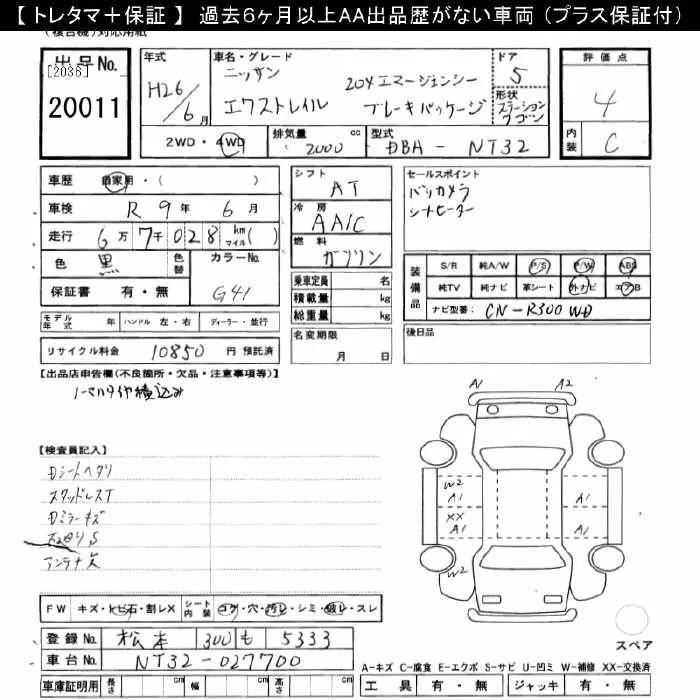 【 トレタマ＋保証 】 過去6ヶ月以上AA出品歴がない車両 （プラス保証付）
(複合機)対応用紙
出品No.
[2036]
20011
年式
H26/6月
車名・グレード
ニッサン 204エマージェンシー
エクストレイル ブレーキパッケージ
ドア
5
形状
ステーション
ワゴン
評価点
4
内装
C
2WD・4WD
排気量
2000 cc
型式
DBA - NT32
車歴 自家用・( )
車検 R 9年 6月
走行 6万7千028 km マイル( )
色 黒 色替
カラーNo.
G41
保証書 有・無
モデル年式 年 ハンドル 左・右 ディーラー・並行
リサイクル料金 10850 円 預託済
シフト
AT
冷房
AAC
燃料
ガソリン
乗車定員 名
積載量 kg
総重量 kg
名変期限
月 日
セールスポイント
バックカメラ
シートヒーター
装備品
S/R 純A/W P/S P/W ABS
純TV 純ナビ 革シート 外ナビ エアB
ナビ型番: CN-R300WD
後日品
【出品店申告欄(不良箇所・欠品・注意事項等)】
ノーマルタイヤ積込み
【検査員記入】
Dシートヘタリ
スタッドレスT
Dミラーキズ
S
アンテナ欠
A1 A2
W2
A1
XX
A1
W2
A1
A1
スペア
FW キズ・トビ石・割レX
シート内装 コゲ・穴・汚レ・シミ・破レ・スレ
登録No. 松本 300 も 5333
車台No. NT32-027700
車庫証明用 長さ cm 幅 cm 高さ cm
A-キズ C-腐食 E-エクボ S-サビ U-凹ミ W-補修 XX-交換済
工具 有・無 ジャッキ 有・無